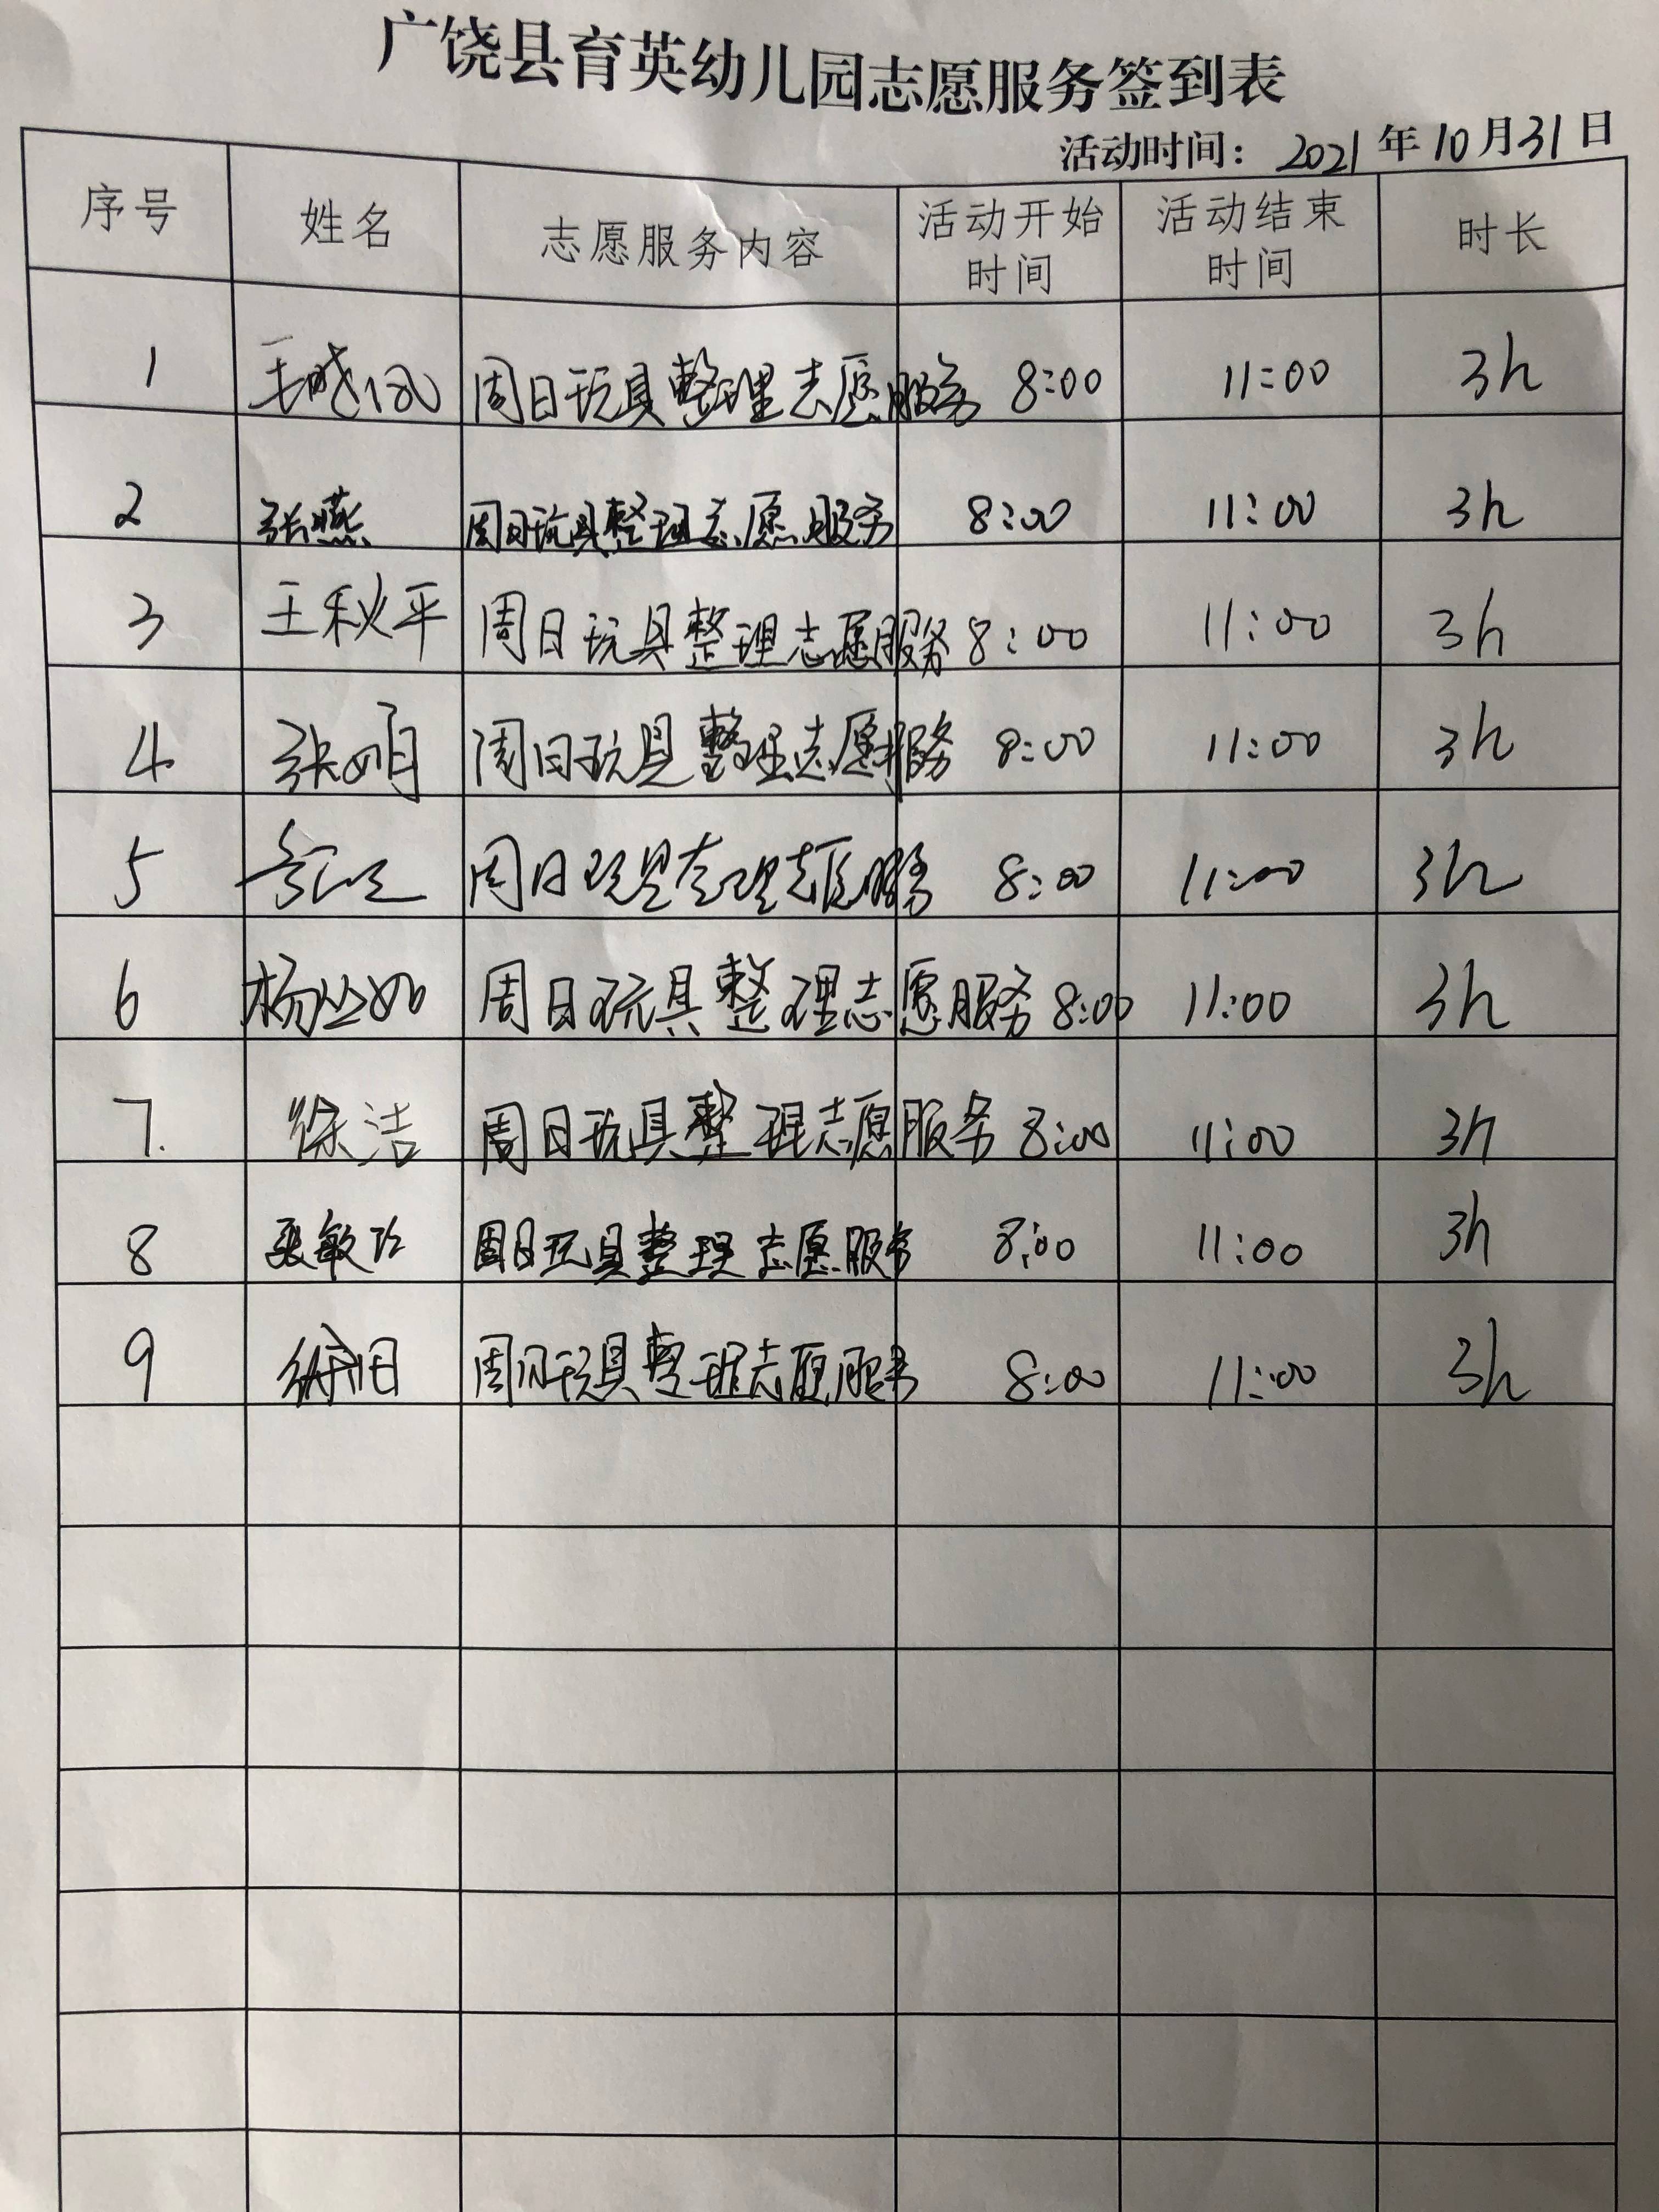 广饶县育英幼儿园志愿服务签到表
活动时间： 2021 年 10 月 31 日
序号 姓名 志愿服务内容 活动开始时间 活动结束时间 时长
1 周日玩具整理志愿服务 8:00 11:00 3h
2 张燕 周日玩具整理志愿服务 8:00 11:00 3h
3 王秋平 周日玩具整理志愿服务 8:00 11:00 3h
4 张娟 周日玩具整理志愿服务 8:00 11:00 3h
5 周日玩具整理志愿服务 8:00 11:00 3h
6 杨丛如 周日玩具整理志愿服务 8:00 11:00 3h
7. 徐洁 周日玩具整理志愿服务 8:00 11:00 3h
8 周日玩具整理志愿服务 8:00 11:00 3h
9 周日玩具整理志愿服务 8:00 11:00 3h